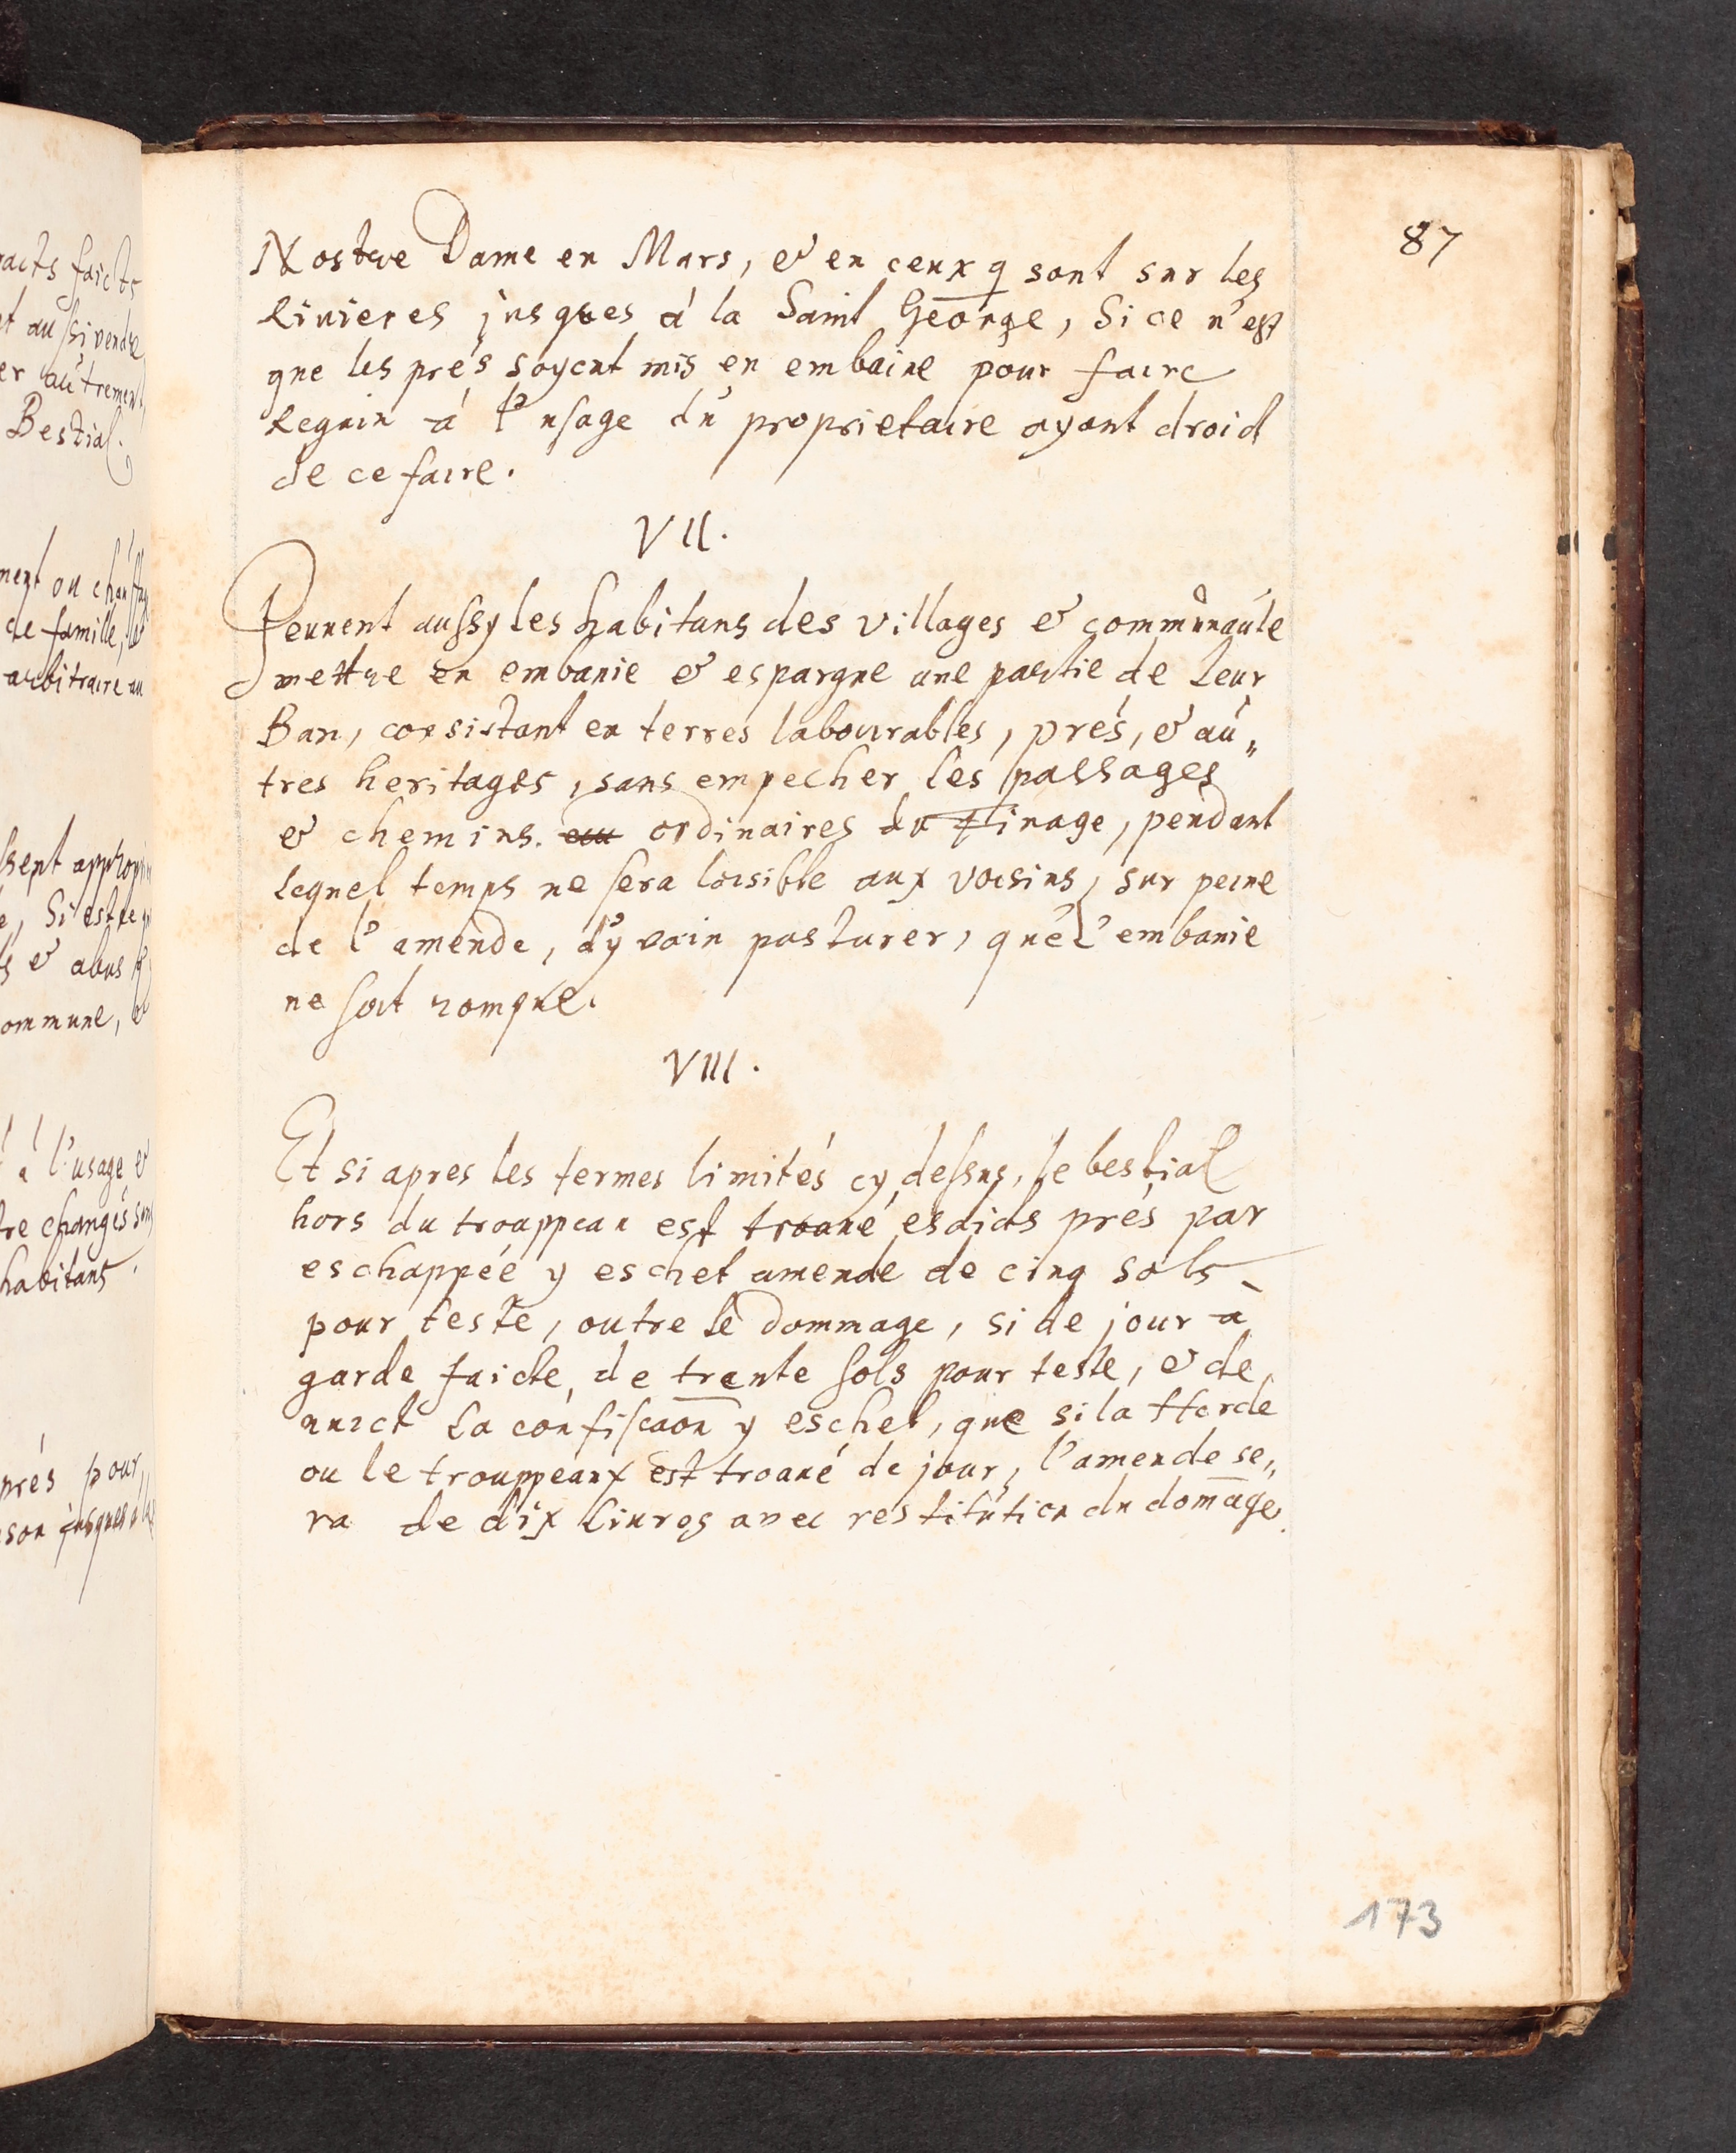 acts faicts
t aussi vendre
er autrement
Bestial.
ment ou chauffag
de famille, et
arbitraire au
sent appropri
e, Si est ce
s & abus q
ommune, &
à l'usage &
tre changés sans
habitans.
prés pour
son jusques a la
87
Nostre Dame en Mars, & en ceux q sont sur les
Rivieres jusques á la Saint George, Si ce n'est
que les prés soyent mis en embaine pour faire
Regain á l'usage du proprietaire ayant droid
de ce faire.
VII.
Peuvent aussy les habitans des villages & communaute
mettre en embanie & espargne une partie de leur
Ban, consistant en terres labourables, prés, & au„
tres heritages, sans empecher les passages
& chemins. eau ordinaires du Finage, pendant
lequel temps ne sera loisible aux voisins, sur peine
de l'amende, d'y vain pasturer, que l'embanie
ne soit rompue.
VIII.
Et si apres les termes limités cy dessus, le bestial
hors du trouppeau est trouué esdids prés par
eschappée y eschet amende de cinq sols
pour teste, outre le dommage, si de jour a
garde faicte, de trente sols pour teste, & de
nuict la confiscaon y eschet, que si la Herde
ou le trouppeaux est trouué de jour, l'amende se„
ra de dix liures avec restitution du domage.
173